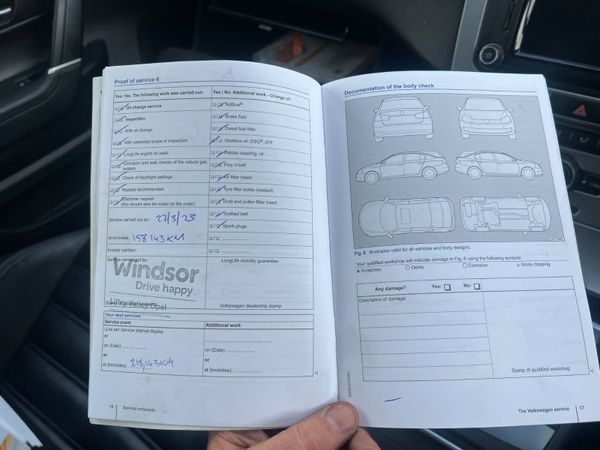 Proof of service 6
Yes / No. The following work was carried out:
Oil change service
Inspection
With oil change
With extended scope of inspection
LongLife engine oil used
Corrosion and leak checks of the natural gas system
Check of headlight settings
Repairs recommended
Customer request
(this should also be noted on the order)
Service carried out on: 27/3/23
at km/miles: 158,143 KM
Invoice number:
Service carried out by:
Windsor
Drive happy
Liffey Valley Opel
Yes / No. Additional work - Change of:
AdBlue®
Brake fluid
Diesel fuel filter
Gearbox oil: DSG®, ATF
Haldex coupling: oil
Poly V-belt
Air filter insert
Tyre filler bottle (sealant)
Dust and pollen filter insert
Toothed belt
Spark plugs
LongLife mobility guarantee:
Volkswagen dealership stamp
Your next services
Service event
as per Service interval display
or
on (Date):
or
at (km/miles): 218,143 KM
Additional work
on (Date):
or
at (km/miles):
16 Service schedule
Documentation of the body check
Fig. 6 Illustration valid for all vehicles and body designs.
Your qualified workshop will indicate damage in Fig. 6 using the following symbols:
Scratches
Dents
Corrosion
Stone chipping
Any damage? Yes: No:
Description of damage:
Stamp of qualified workshop
The Volkswagen service 17